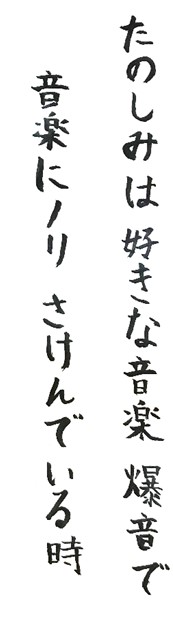 たのしみは 好きな音楽 爆音で
音楽にノリ さけんでいる時